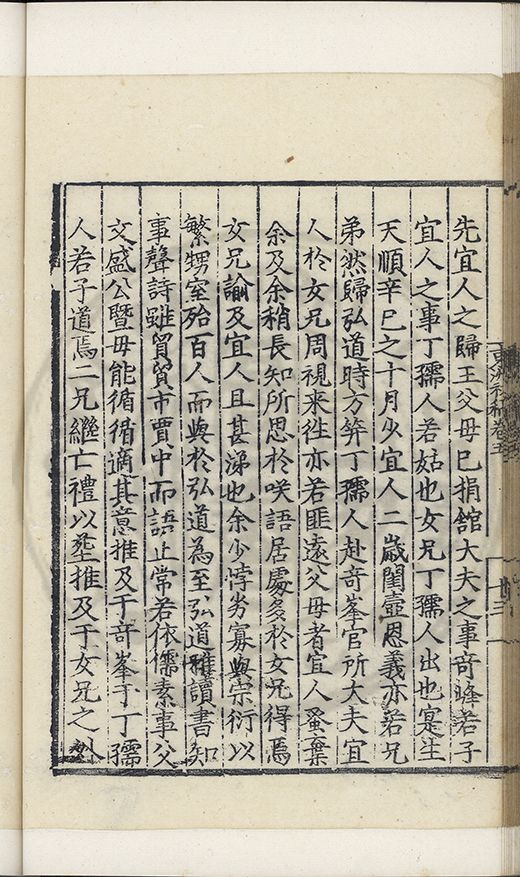 先宜人之歸王父母已捐舘大夫之事竒峰若子
宜人之事丁孺人若姑也女兄丁孺人出也寔生
天順辛巳之十月少宜人二歲閨壼恩義亦若兄
弟然歸弘道時方笄丁孺人赴竒峯官所大夫宜
人於女兄周視来徃亦若匪遠父母者宜人蚤棄
余及余稍長知所思於咲語居處多於女兄得焉
女兄諭及宜人且甚涕也余少悖劣寡與宗衍以
繁甥室殆百人而與於弘道為至弘道雅讀書知
事聲詩雖貿貿市賈中而語止常若依儒素事父
文盛公暨母能循循適其意推及于竒峯于丁孺
人若子道焉二兄繼亡禮以塟推及于女兄之外
卷五
十三